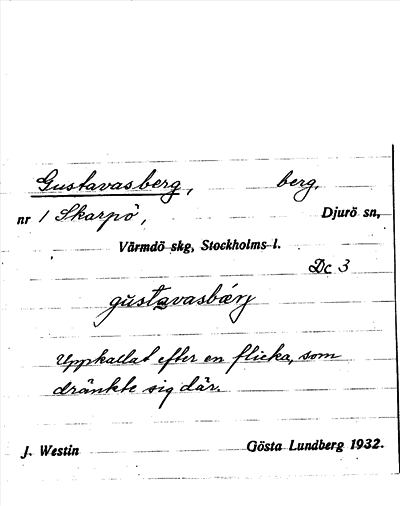 Gustavasberg, berg.
nr 1 Skarpö, Djurö sn,
Värmdö skg, Stockholms l.
Dc 3
gustavasbærj
Uppkallat efter en flicka, som
dränkte sig där.
J. Westin Gösta Lundberg 1932.